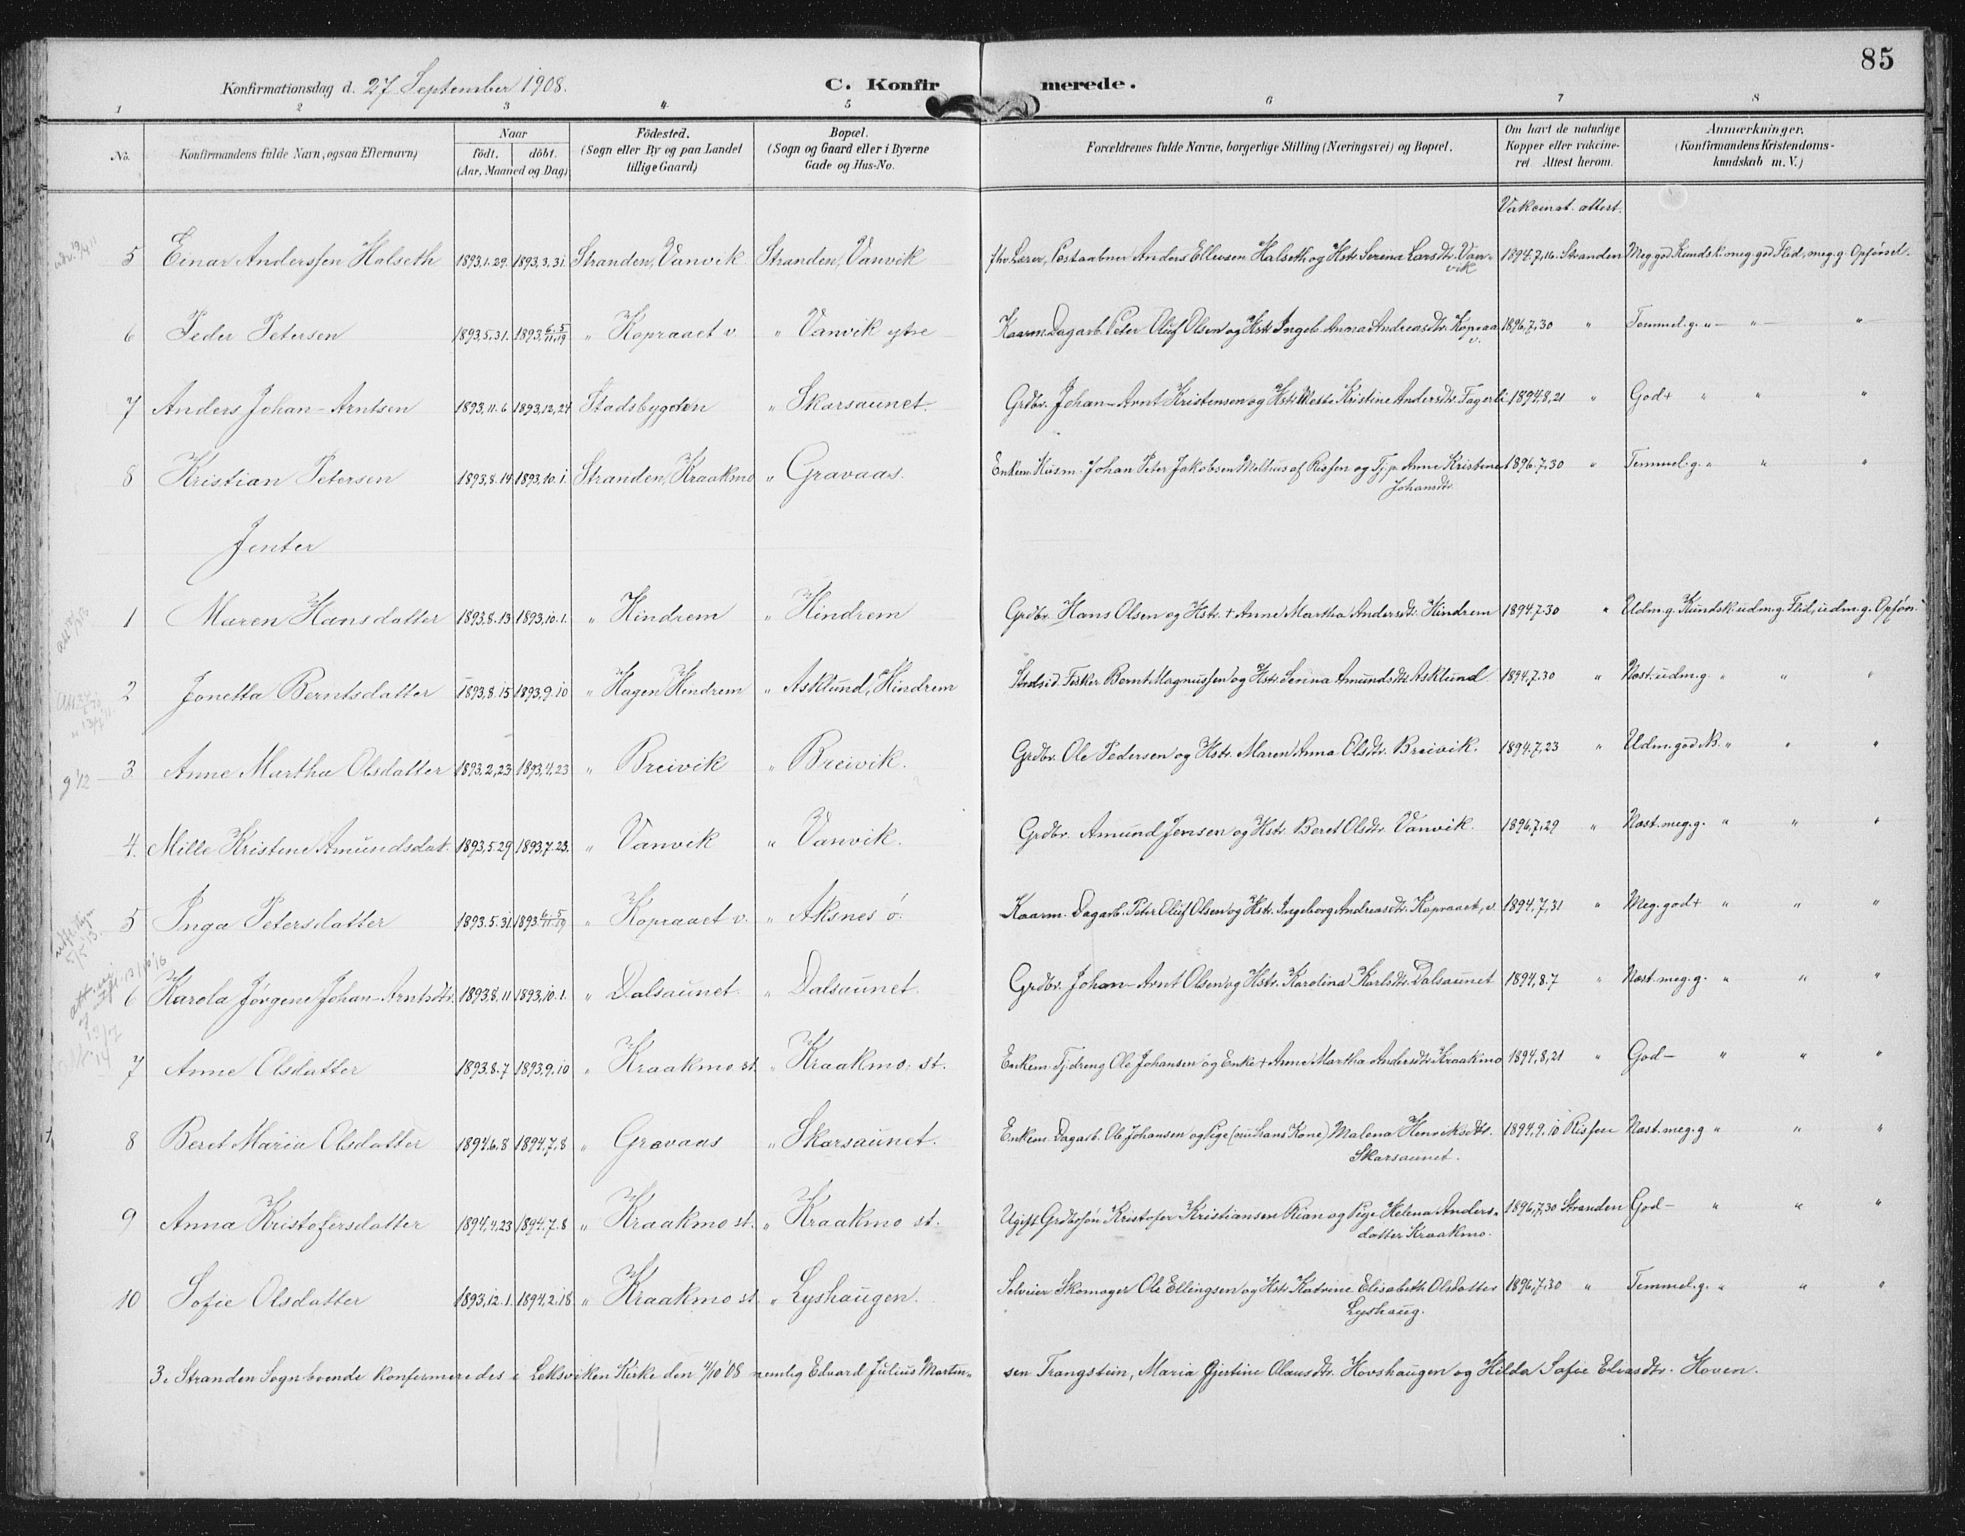 85
Konfirmationsdag d. 27 September 1908.
C. Konfirmerede.
1 2 3 4 5 6 7 8
No.
Konfirmandens fulde Navn, ogsaa Efternavn)
Naar
födt. döbt.
(Aar, Maaned og Dag)
Födested.
(Sogn eller By og paa Landet tillige Gaard)
Bopæl.
(Sogn og Gaard eller i Byerne Gade og Hus-No.
Forældrenes fulde Navne, borgerlige Stilling (Næringsvei) og Bopæl.
Om havt de naturlige Kopper eller vakcineret. Attest herom.
Anmærkninger.
(Konfirmandens Kristendomskundskab m. V.)
Vakcinat. attest.
5 Einar Anderssen Halseth 1893.1.29. 1893.3.31. Stranden, Vanvik Stranden, Vanvik fhv. Lærer, Postaabner Anders Ellevsen Halseth og Hstr. Serina Larsdtr. Vanvik 1894.7.16. Stranden Meg. god Kundsk. meg. god Flid, meg. g. Opförsel.
6 Peder Petersen 1893.5.31. 1893. 6.5/11.19 " Kopraaet v. " Vanvik ytre Kaarm. Dagarb. Peter Oluf Olsen og Hstr. Ingeb. Anna Andreasdtr. Kopraa. v. 1896.7.30 " Temmel. g. " — " — "
7 Anders Johan-Arntsen 1893.11.6 1893.12.24 Stadsbygden " Skarsaunet. Grdbr. Johan-Arnt Kristensen og Hstr. Mette Kristine Andersdtr. Fagerli 1894.8.21 " God+ " " "
8 Kristian Petersen 1893.8.14 1893.10.1. Stranden, Kraakmo " Gravaas. Enkem. Husm. Johan Peter Jakobsen Melhus af Rissen og Tj.p. Anne Kristine Johansdtr. 1896.7.30 " Temmel. g. " " "
Jenter
1 Maren Hansdatter 1893.8.13 1893.10.1. " Hindrem " Hindrem Grdbr. Hans Olsen og Hstr. + Anne Martha Andersdtr. Hindrem 1894.7.30 " Udm. g. Kundsk. udm. g. Flid, udm. g. Opför.
2 Jonetta Berntsdatter 1893.8.15 1893.9.10 " Hagen Hindrem " Asklund, Hindrem Strdsid. Fisker Bernt Magnussen og Hstr. Serina Amundsdtr. Asklund. 1894.7.30 " Næst. udm. g. " " "
3 Anne Martha Olsdatter 1893.2.23 1893.4.23 " Breivik " Breivik. Grdbr. Ole Pedersen og Hstr. Maren Anna Olsdtr. Breivik. 1894.7.23 " Udm. god K. " " "
4. Mille Kristine Amundsdat. 1893.5.29 1893.7.23. " Vanvik " Vanvik. Grdbr. Amund Jensen og Hstr. Beret Olsdtr. Vanvik. 1896.7.29 " Næst. meg. g. " " "
5 Inga Petersdatter 1893.5.31. 1893 6.5/11.19 " Kopraaet v. " Aksnes ö. Kaarm. Dagarb. Peter Oluf Olsen og Hstr. Ingeborg Andreasdtr. Kopraaet, v. 1894.7.31 " Meg. god+ " " "
6 Karola Jörgene Johan-Arntsdtr. 1893.8.11 1893.10.1. " Dalsaunet. " Dalsaunet. Grdbr. Johan-Arnt Olsen og Hstr. Karolina Karlsdtr. Dalsaunet 1894.8.7 " Næst. meg. g. " " "
7 Anne Olsdatter 1893.8.7 1893.9.10 " Kraakmo st. " Kraakmo. st. Enkem. Tj.dreng Ole Johansen og Enke + Anne Martha Andersdtr. Kraakmo 1894.8.21 " God— " " "
8 Beret Maria Olsdatter 1894.6.8 1894.7.8 " Gravaas " Skarsaunet. Enkem. Dagarb. Ole Johansen og Pige (nu hans Kone) Malena Henriksdtr. Skarsaunet. 1894.9.10 Rissen Næst. meg. g " " "
9 Anna Kristofersdatter 1894.4.23 1894.7.8 " Kraakmo st. " Kraakmo st. Ugift Grdbrsön Kristofer Kristiansen Rian og Pige Helena Andersdatter Kraakmo. 1896.7.30 Stranden God— " " "
10 Sofie Olsdatter 1893.12.1. 1894.2.18 " Kraakmo st. " Lyshaugen. Selveier Skomager Ole Ellingsen og Hstr. Katrine Elisabeth Olsdatter Lyshaug. 1896.7.30 " Temmel. g. " " "
3 i Stranden Sogn boende konfirmeredes i Leksviken Kirke den 4/10 08 nemlig Edvard Julius Martinsen Trangstein, Maria Gjertine Olausdtr. Hovshaugen og Hilda Sofie Eliasdtr. Hoven.